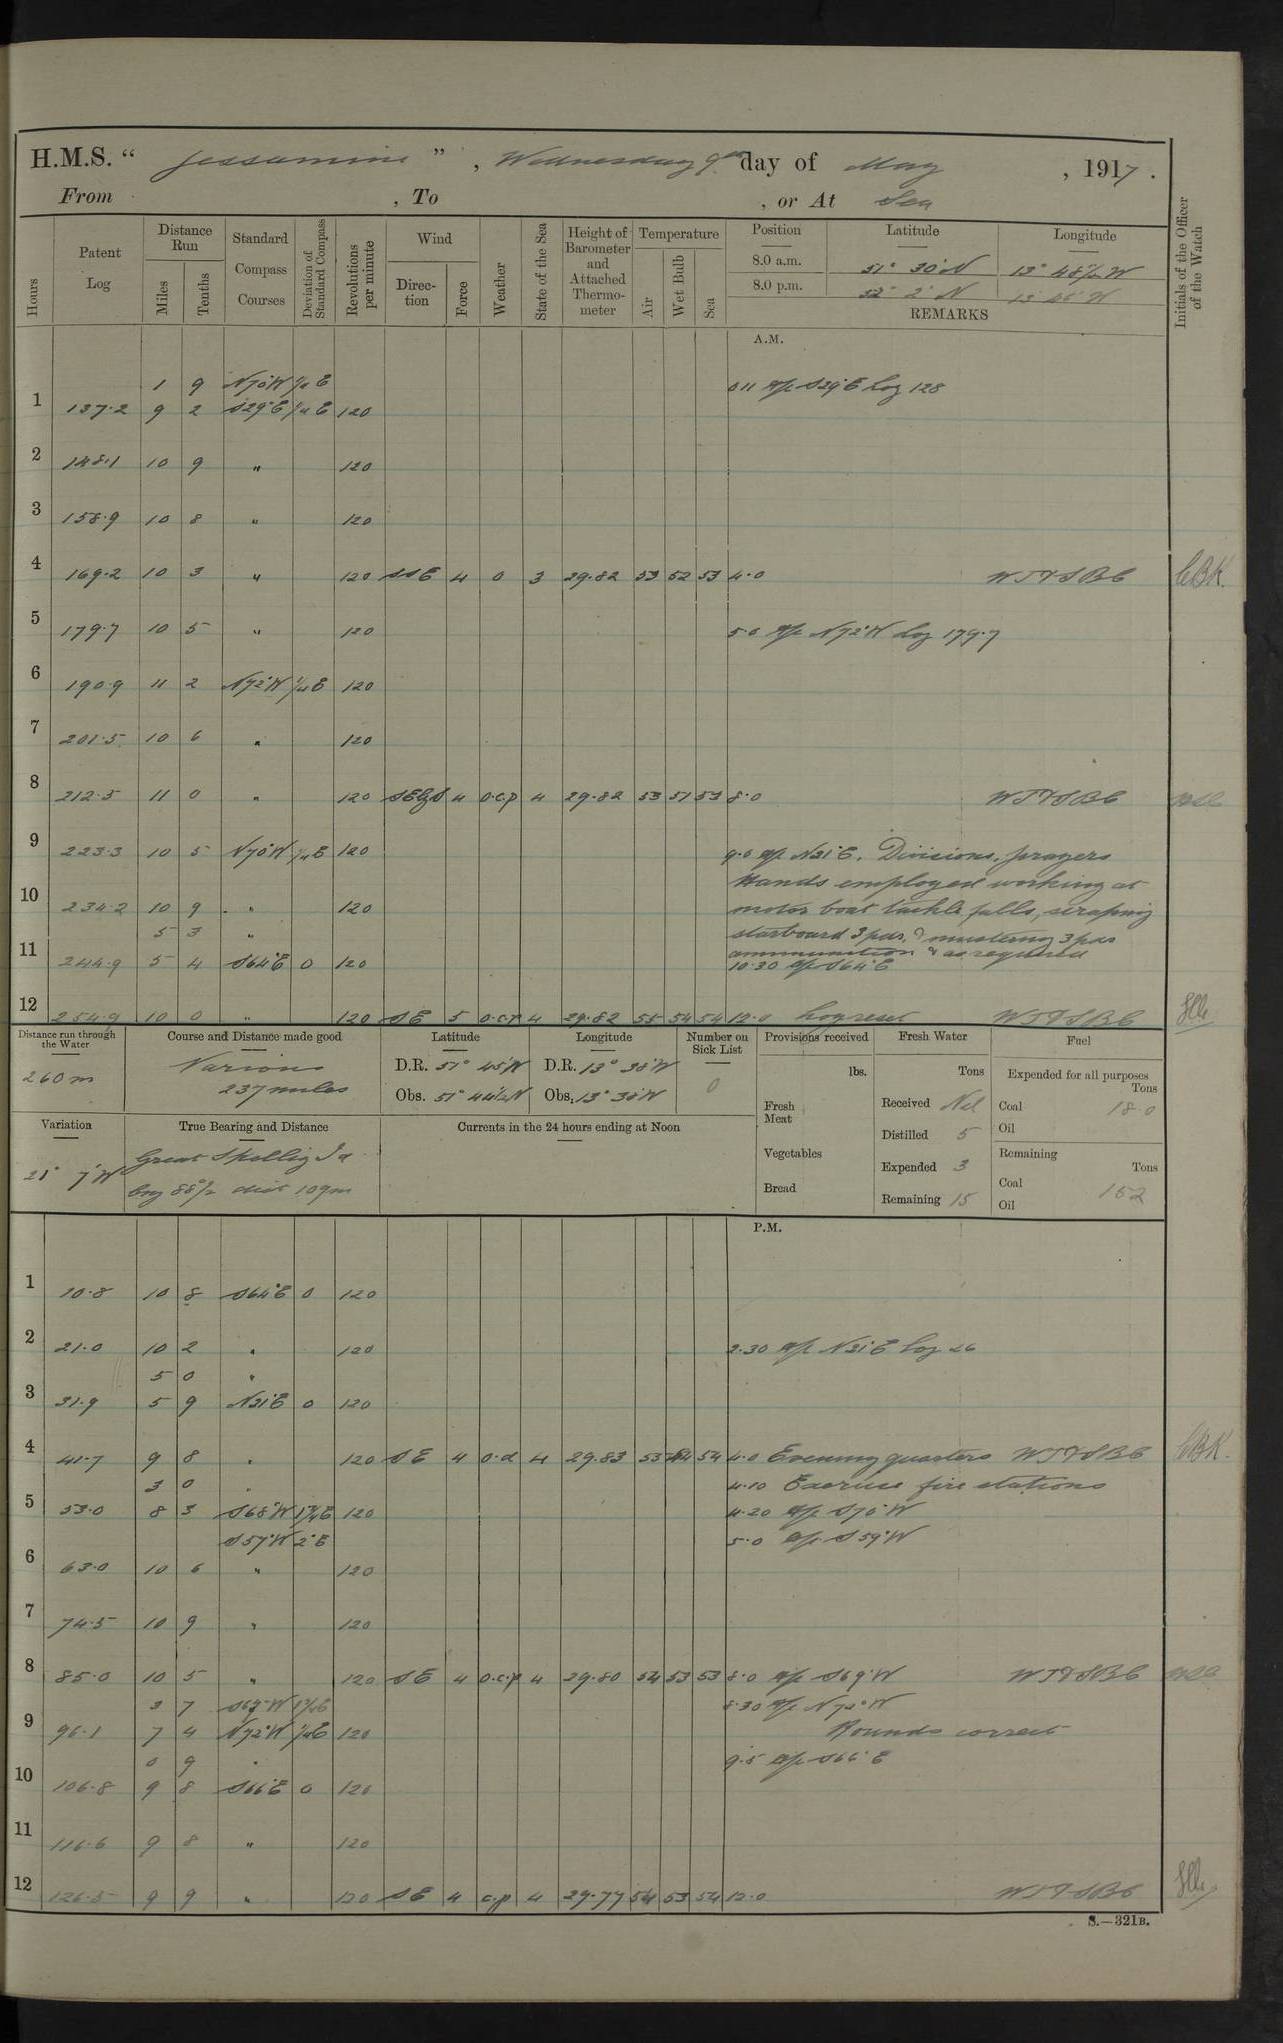 H.M.S. “ Jessamine ” , Wednesday 9th day of May , 1917 .
From , To , or At Sea
Hours
Patent Log
Distance Run
Miles
Tenths
Standard Compass Courses
Deviation of Standard Compass
Revolutions per minute
Wind
Direction
Force
Weather
State of the Sea
Height of Barometer and Attached Thermometer
Temperature
Air
Wet Bulb
Sea
Position Latitude Longitude
8.0 a.m. 51° 30' N 13° 48½ W
8.0 p.m. 52° 2' N 13° 45' W
REMARKS
Initials of the Officer of the Watch
A.M.
1 9 N70°W ¼ E 0 11 a/c S29°E Log 128
1 137.2 9 2 S29°E ¼ E 120
2 148.1 10 9 " 120
3 158.9 10 8 " 120
4 169.2 10 3 " 120 SSE 4 O 3 29.82 53 52 53 4.0 WTTSBC CBK.
5 179.7 10 5 " 120 5.0 a/c N72°W Log 179.7
6 190.9 11 2 N72°W ¼ E 120
7 201.5 10 6 " 120
8 212.5 11 0 " 120 SEbyS 4 o.c.p 4 29.82 53 51 53 8.0 WTTSBC
9 223.3 10 5 N70°W ¼ E 120 9.0 a/c N31°E. Divisions, prayers
Hands employed working at
10 234.2 10 9 " 120 motor boat tackle falls, scraping
5 3 " starboard 3 pdr, & mustering 3 pdr
ammunition & as required
11 244.9 5 4 S64°E 0 120 10.30 a/c S64°E
12 254.9 10 0 " 120 SE 5 o.c.p 4 29.82 55 54 54 12.0 Log reset WTTSBC
Distance run through the Water
260 m
Course and Distance made good
Various
237 miles
Latitude
D.R. 51° 45' N
Obs. 51° 44½ N
Longitude
D.R. 13° 38' W
Obs. 13° 38' W
Number on Sick List
0
Provisions received
lbs.
Fresh Meat
Vegetables
Bread
Fresh Water
Tons
Received Nil
Distilled 5
Expended 3
Remaining 15
Fuel
Expended for all purposes
Tons
Coal 18.0
Oil
Remaining
Tons
Coal 152
Oil
Variation
21° 7' W
True Bearing and Distance
Great Skellig Id
brg 88½° dist 109m
Currents in the 24 hours ending at Noon
P.M.
1 10.8 10 8 S64°E 0 120
2 21.0 10 2 " 120 2.30 a/c N31°E Log 26
5 0 "
3 31.9 5 9 N31°E 0 120
4 41.7 9 8 " 120 SE 4 o.d 4 29.83 53 54 54 4.0 Evening quarters WTTSBC CBK.
3 0 " 4.10 Exercise fire stations
5 53.0 8 3 S68°W 1¾E 120 4.20 a/c S70°W
S57°W 2°E 5.0 a/c S59°W
6 63.0 10 6 " 120
7 74.5 10 9 " 120
8 85.0 10 5 " 120 SE 4 o.c.p 4 29.80 54 53 53 8.0 a/c S69°W WTTSBC
3 7 S67°W 8.30 a/c N72°W
9 96.1 7 4 N72°W ¼E 120 Rounds correct
0 9 " 9.5 a/c S66°E
10 106.8 9 8 S66°E 0 120
11 116.6 9 8 " 120
12 126.5 9 9 " 120 SE 4 c.p 4 29.77 54 53 54 12.0 WTTSBC
S.—321B.